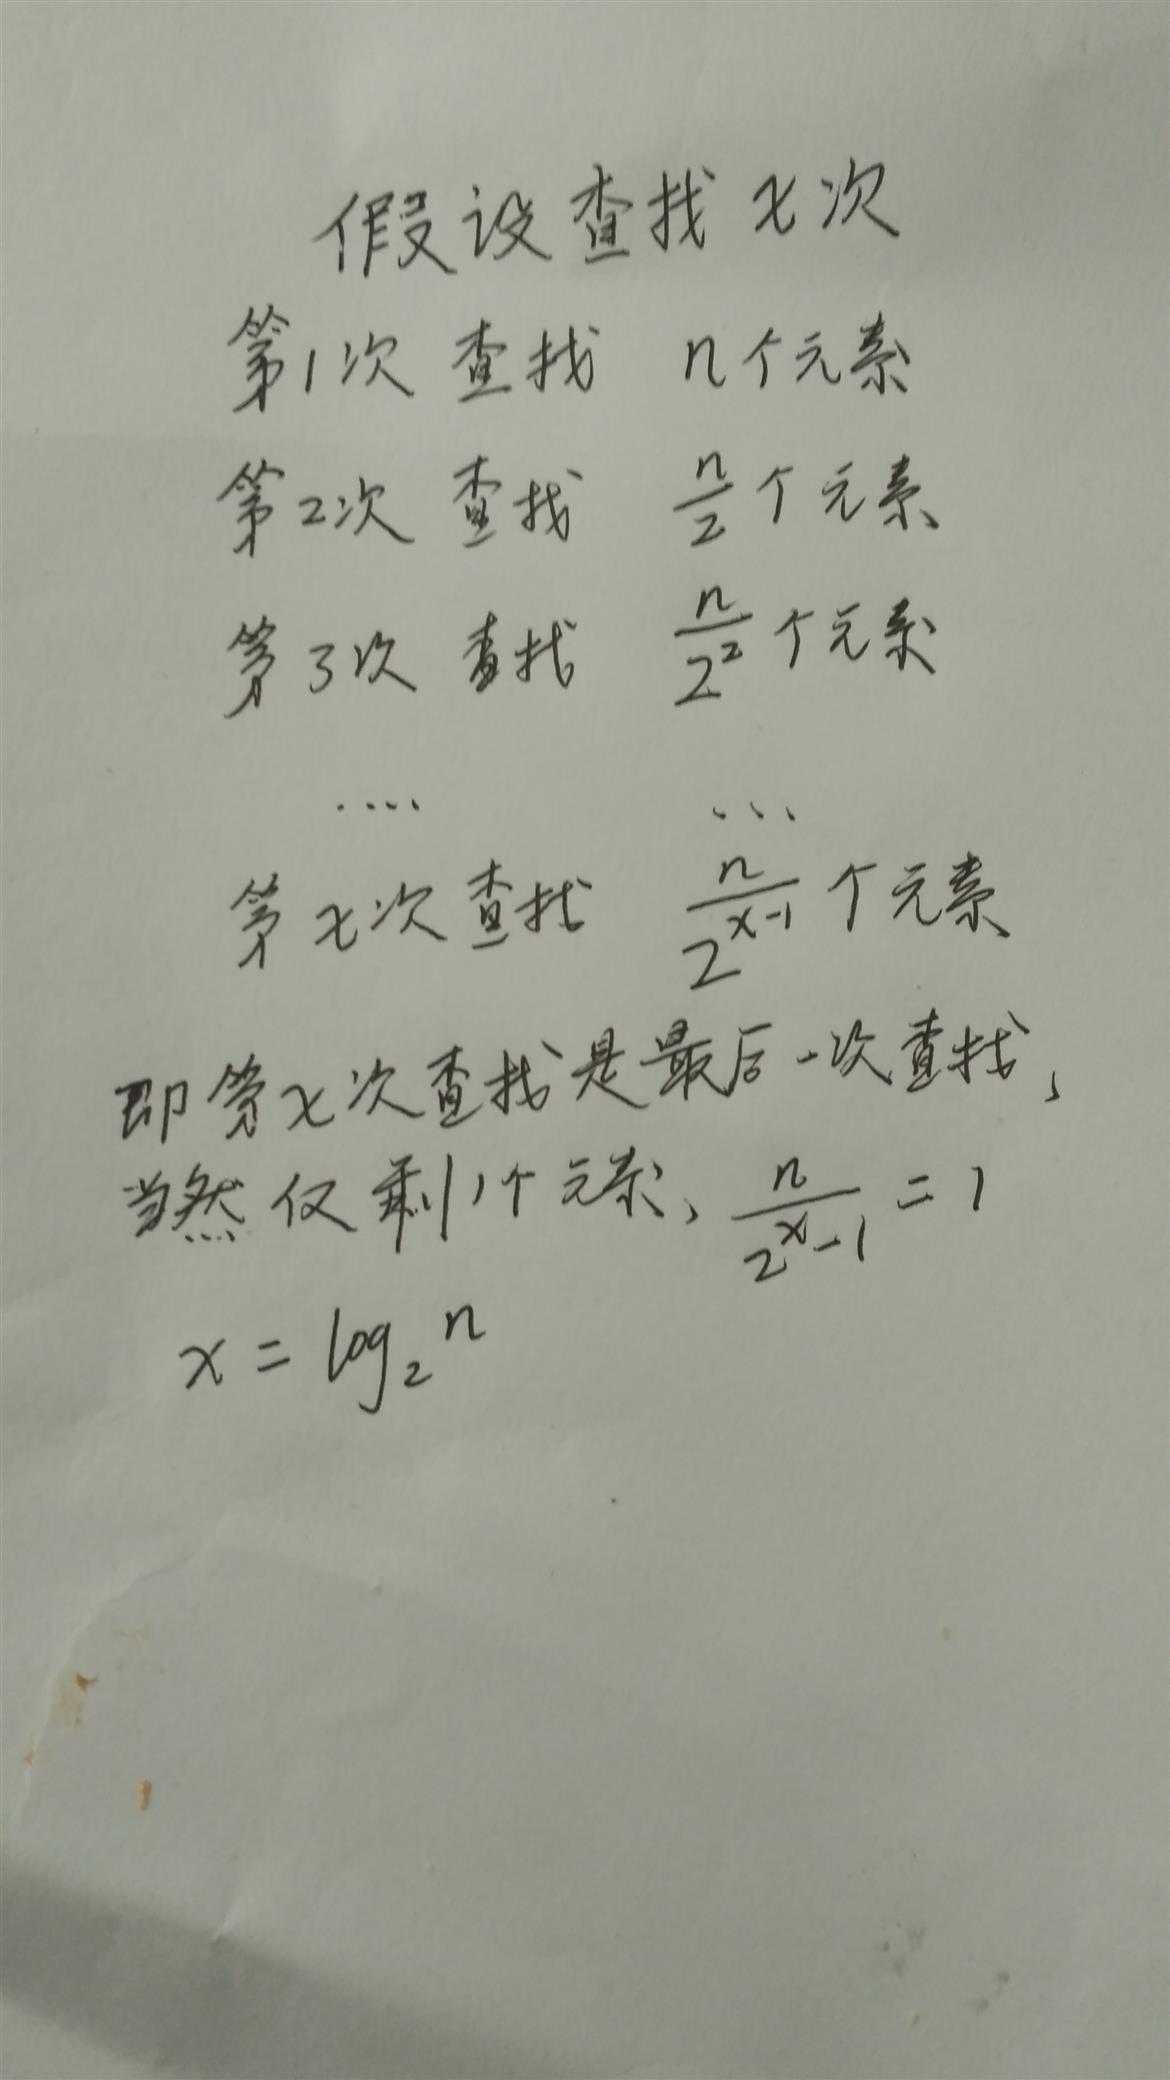 假设查找x次
第1次 查找 n个元素
第2次 查找 n/2个元素
第3次 查找 n/2²个元素
.... ...
第x次查找 n/2^(x-1)个元素
即第x次查找是最后一次查找,
当然仅剩1个元素, n/2^(x-1) = 1
x = log₂n